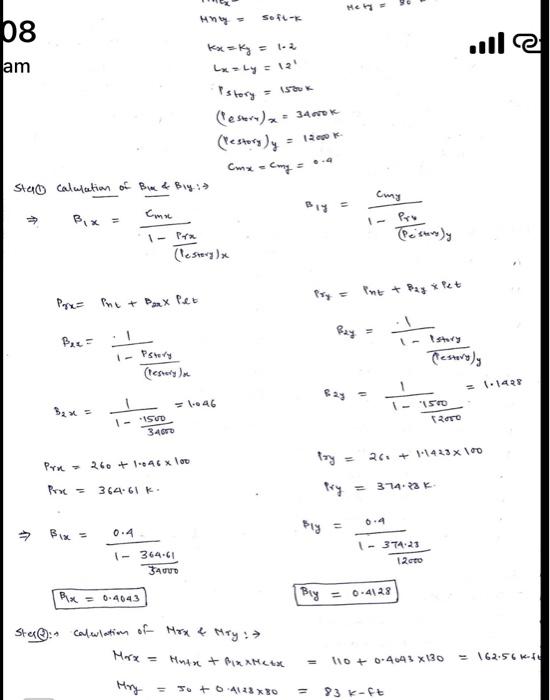 Mnty = 50 ft-k
08
am
Kx = Ky = 1.2
Lx = Ly = 12'
Pstory = 1500 K
(Pestory)x = 34000 K
(Pestory)y = 12000 K.
Cmx = Cmy = 0.4
Step① Calculation of B1x & B1y :→
⇒ B1x = Cmx / (1 - Prx / (Pestory)x)
B1y = Cmy / (1 - Pry / (Pestory)y)
Prx = Pnt + B2x x Plt
Pry = Pnt + B2y x Plt
B2x = 1 / (1 - Pstory / (Pestory)x)
B2y = 1 / (1 - Pstory / (Pestory)y)
B2x = 1 / (1 - 1500 / 34000) = 1.046
B2y = 1 / (1 - 1500 / 12000) = 1.1428
Prx = 260 + 1.046 x 100
Pry = 260 + 1.1423 x 100
Prx = 364.61 K.
Pry = 374.23 K.
⇒ B1x = 0.4 / (1 - 364.61 / 34000)
B1y = 0.4 / (1 - 374.23 / 12000)
B1x = 0.4043
B1y = 0.4128
Step②:→ calculation of Mrx & Mry :→
Mrx = Mntx + B1x x Mltx = 110 + 0.4043 x 130 = 162.56 k-ft
Mry = 50 + 0.4128 x 80 = 83 k-ft